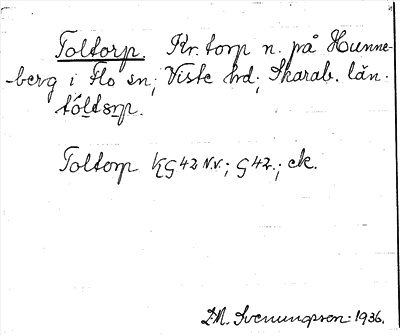 Toltorp. Kr. torp n. på Hunne-
berg i Flo sn; Viste hd; Skarab. län.
Toltorp KG 42 NV.; G 42.; ek.
D.M. Svenungsson 1936.